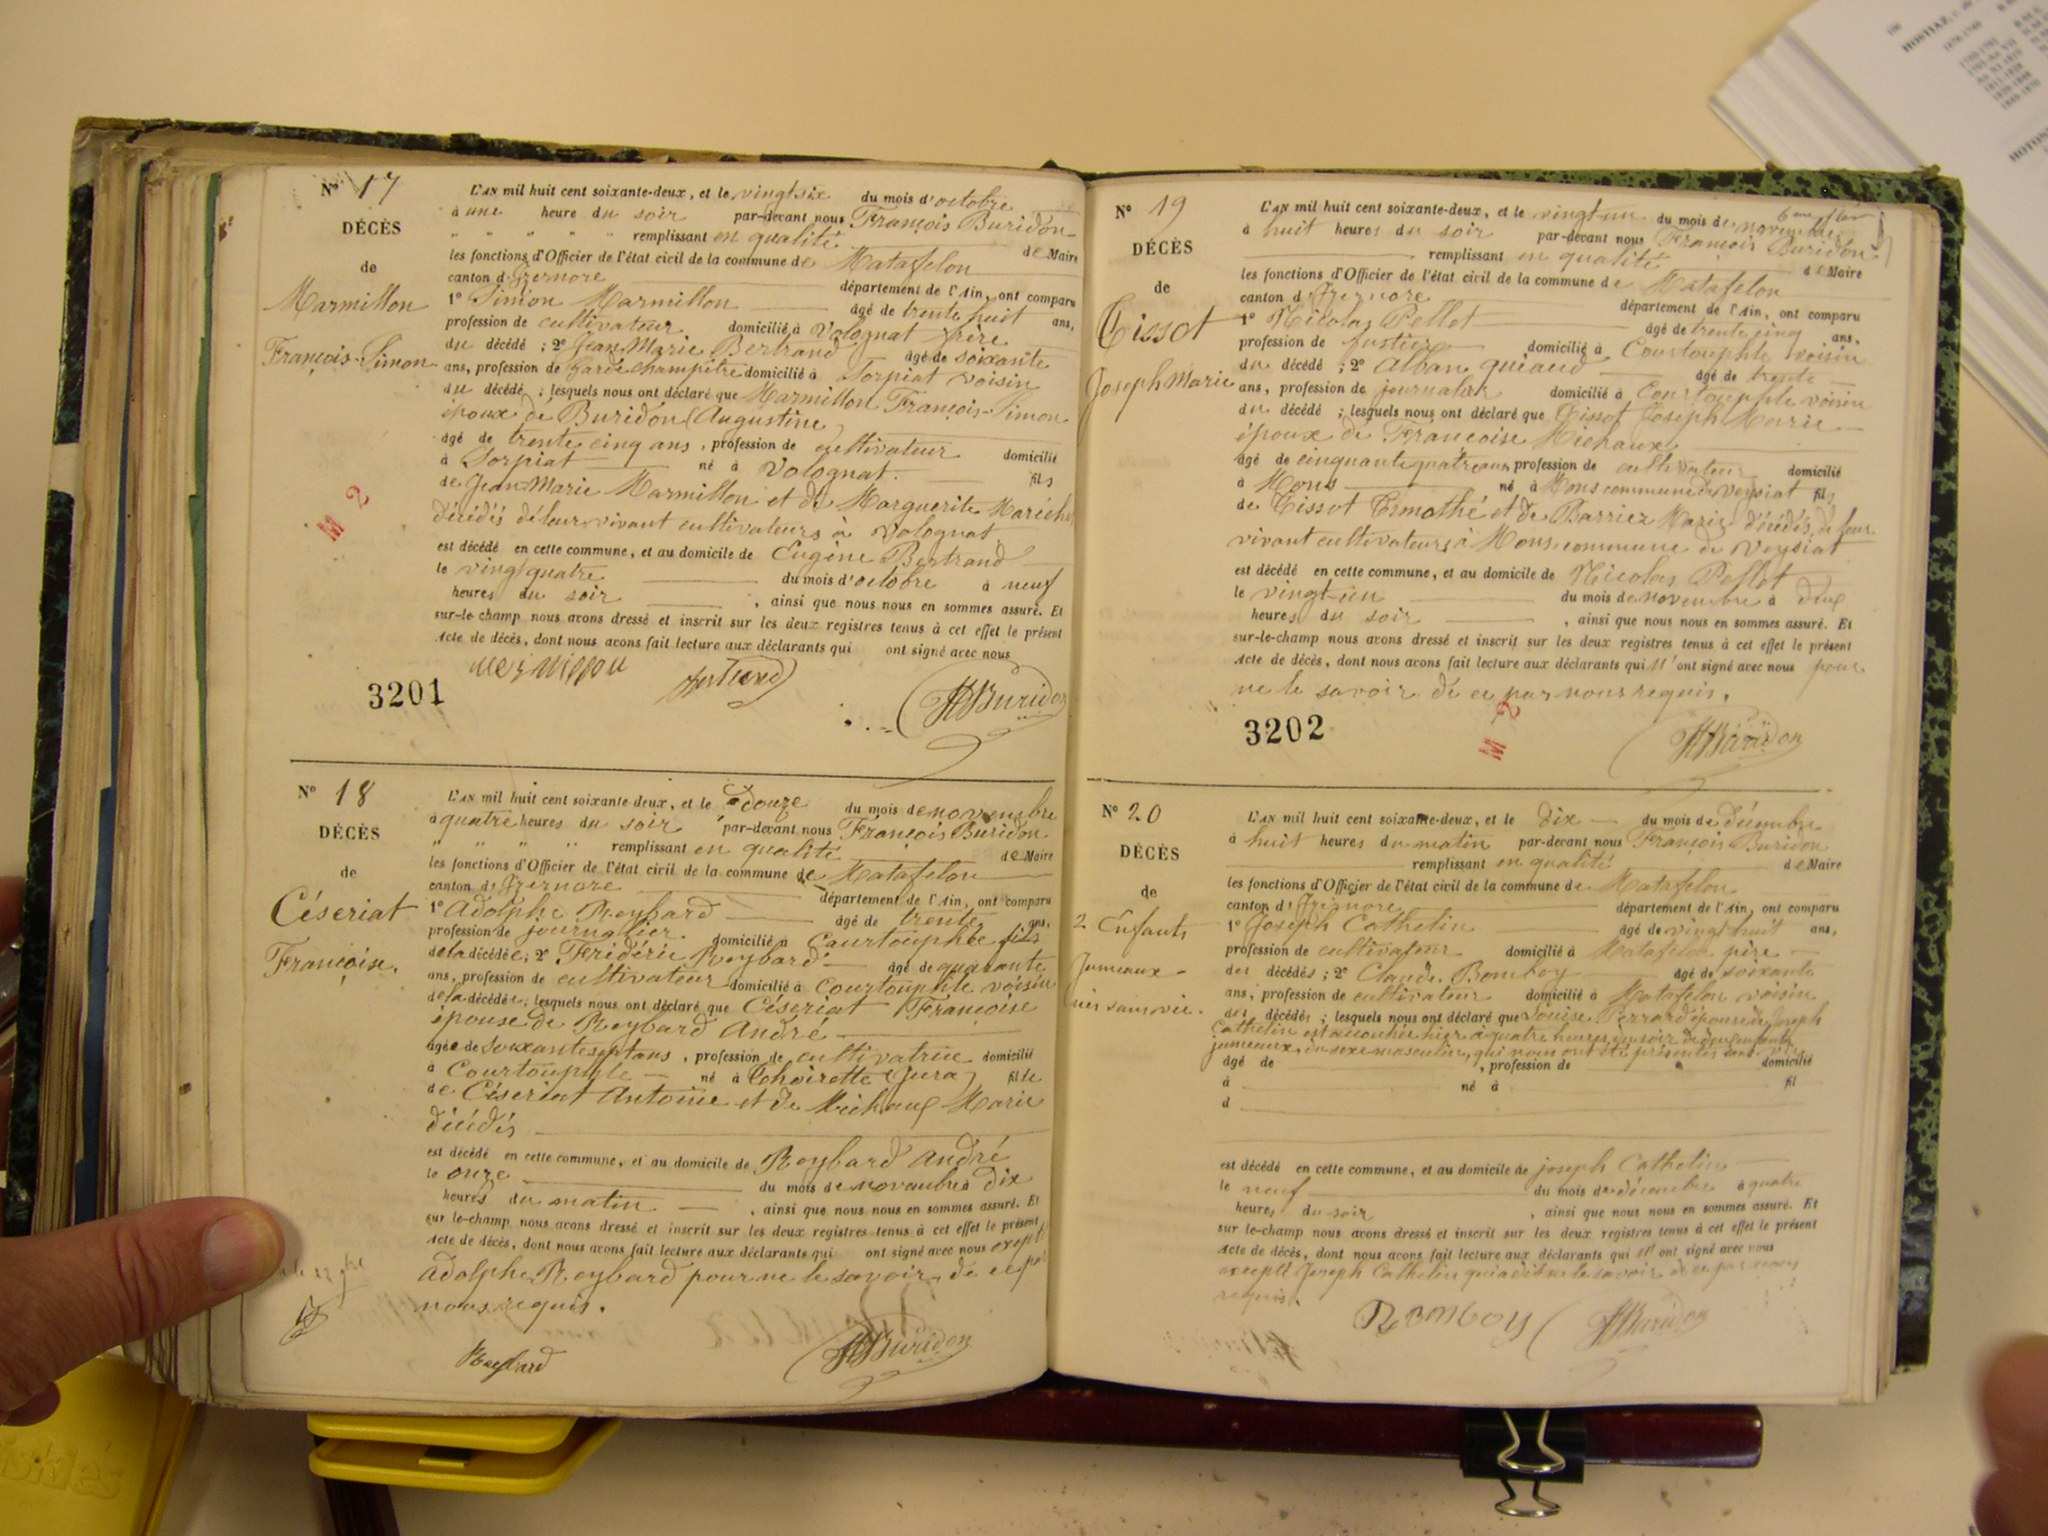 N° 17
DÉCÈS
de
Marmillon
François-Simon
L'AN mil huit cent soixante-deux, et le vingt six du mois d'octobre
à une heure du soir par-devant nous François Buridon
" " " " " remplissant en qualité de Maire
les fonctions d'Officier de l'état civil de la commune de Matafelon
canton d'Izernore département de l'Ain, ont comparu
1° Simon Marmillon âgé de trente huit ans,
profession de cultivateur domicilié à Volognat frère
du décédé ; 2° Jean Marie Bertrand âgé de soixante
ans, profession de garde champêtre domicilié à Sorpiat voisin
du décédé ; lesquels nous ont déclaré que Marmillon François-Simon
époux de Buridon Augustine
âgé de trente cinq ans, profession de cultivateur domicilié
à Sorpiat né à Volognat fils
de Jean-Marie Marmillon et de Marguerite
décédés de leur vivant cultivateurs à Volognat
est décédé en cette commune, et au domicile de Eugène Bertrand
le vingt quatre du mois d'octobre à neuf
heures du soir, ainsi que nous nous en sommes assuré. Et
sur-le-champ nous avons dressé et inscrit sur les deux registres tenus à cet effet le présent
acte de décès, dont nous avons fait lecture aux déclarants qui ont signé avec nous
Bertrand Buridon
M 2
3201
N° 18
DÉCÈS
de
Céseriat
Françoise.
L'AN mil huit cent soixante-deux, et le douze du mois de novembre
à quatre heures du soir par-devant nous François Buridon
" " " " remplissant en qualité de Maire
les fonctions d'Officier de l'état civil de la commune de Matafelon
canton d'Izernore département de l'Ain, ont comparu
1° Adolphe Reybard âgé de trente ans,
profession de journalier domicilié à Courtouphle fils
de la décédée ; 2° Fridéric Reybard âgé de quarante
ans, profession de cultivateur domicilié à Courtouphle voisin
de la décédée ; lesquels nous ont déclaré que Céseriat Françoise
épouse de Reybard André
agée de soixante sept ans, profession de cultivatrice domicilié
à Courtouphle né à Thoirette (Jura) fille
de Céseriat Antoine et de Michaux Marie
décédés
est décédé en cette commune, et au domicile de Reybard André
le onze du mois de novembre à dix
heures du matin, ainsi que nous nous en sommes assuré. Et
sur le-champ nous avons dressé et inscrit sur les deux registres tenus à cet effet le présent
acte de décès, dont nous avons fait lecture aux déclarants qui ont signé avec nous
Adolphe Reybard pour ne le savoir, de ce
nous requis.
Reybard Buridon
N° 19
DÉCÈS
de
Tissot
Joseph Marie
L'AN mil huit cent soixante-deux, et le vingt-un du mois de novembre
à huit heures du soir par-devant nous François Buridon
remplissant en qualité de Maire
les fonctions d'Officier de l'état civil de la commune de Matafelon
canton d'Izernore département de l'Ain, ont comparu
1° Nicolas Pellet âgé de trente cinq ans,
profession de fustier domicilié à Courtouphle voisin
du décédé ; 2° Alban âgé de trente
ans, profession de journalier domicilié à Courtouphle voisin
du décédé ; lesquels nous ont déclaré que Tissot Joseph Marie
époux de Françoise Michaux
âgé de cinquante quatre ans profession de cultivateur domicilié
à Mons né à Mons commune de Veysiat fils
de Tissot Timothé et de Barrier Marie décédés de leur
vivant cultivateurs à Mons commune de Veysiat
est décédé en cette commune, et au domicile de Nicolas Pellet
le vingt-un du mois de novembre à deux
heures du soir, ainsi que nous nous en sommes assuré. Et
sur-le-champ nous avons dressé et inscrit sur les deux registres tenus à cet effet le présent
acte de décès, dont nous avons fait lecture aux déclarants qui n'ont signé avec nous pour
ne le savoir de ce par nous requis.
Buridon
3202
M 2
N° 20
DÉCÈS
de
2 Enfants
Jumeaux
nés sans vie.
L'AN mil huit cent soixante-deux, et le dix du mois de décembre
à huit heures du matin par-devant nous François Buridon
remplissant en qualité de Maire
les fonctions d'Officier de l'état civil de la commune de Matafelon
canton d'Izernore département de l'Ain, ont comparu
1° Joseph Cathelin âgé de vingt huit ans,
profession de cultivateur domicilié à Matafelon père
des décédés ; 2° Claude Bomboy âgé de soixante
ans, profession de cultivateur domicilié à Matafelon voisin
des décédés ; lesquels nous ont déclaré que Louise Perrard épouse de Joseph
Cathelin est accouchée hier à quatre heures du soir de deux enfants
jumeaux, du sexe masculin, qui nous ont été présentés sans vie
âgé de , profession de domicilié
à né à fil
d
est décédé en cette commune, et au domicile de Joseph Cathelin
le neuf du mois de décembre à quatre
heures du soir, ainsi que nous nous en sommes assuré. Et
sur le-champ nous avons dressé et inscrit sur les deux registres tenus à cet effet le présent
acte de décès, dont nous avons fait lecture aux déclarants qui ont signé avec nous
excepté Joseph Cathelin qui a dit ne le savoir de ce par nous
requis.
Bomboy Buridon